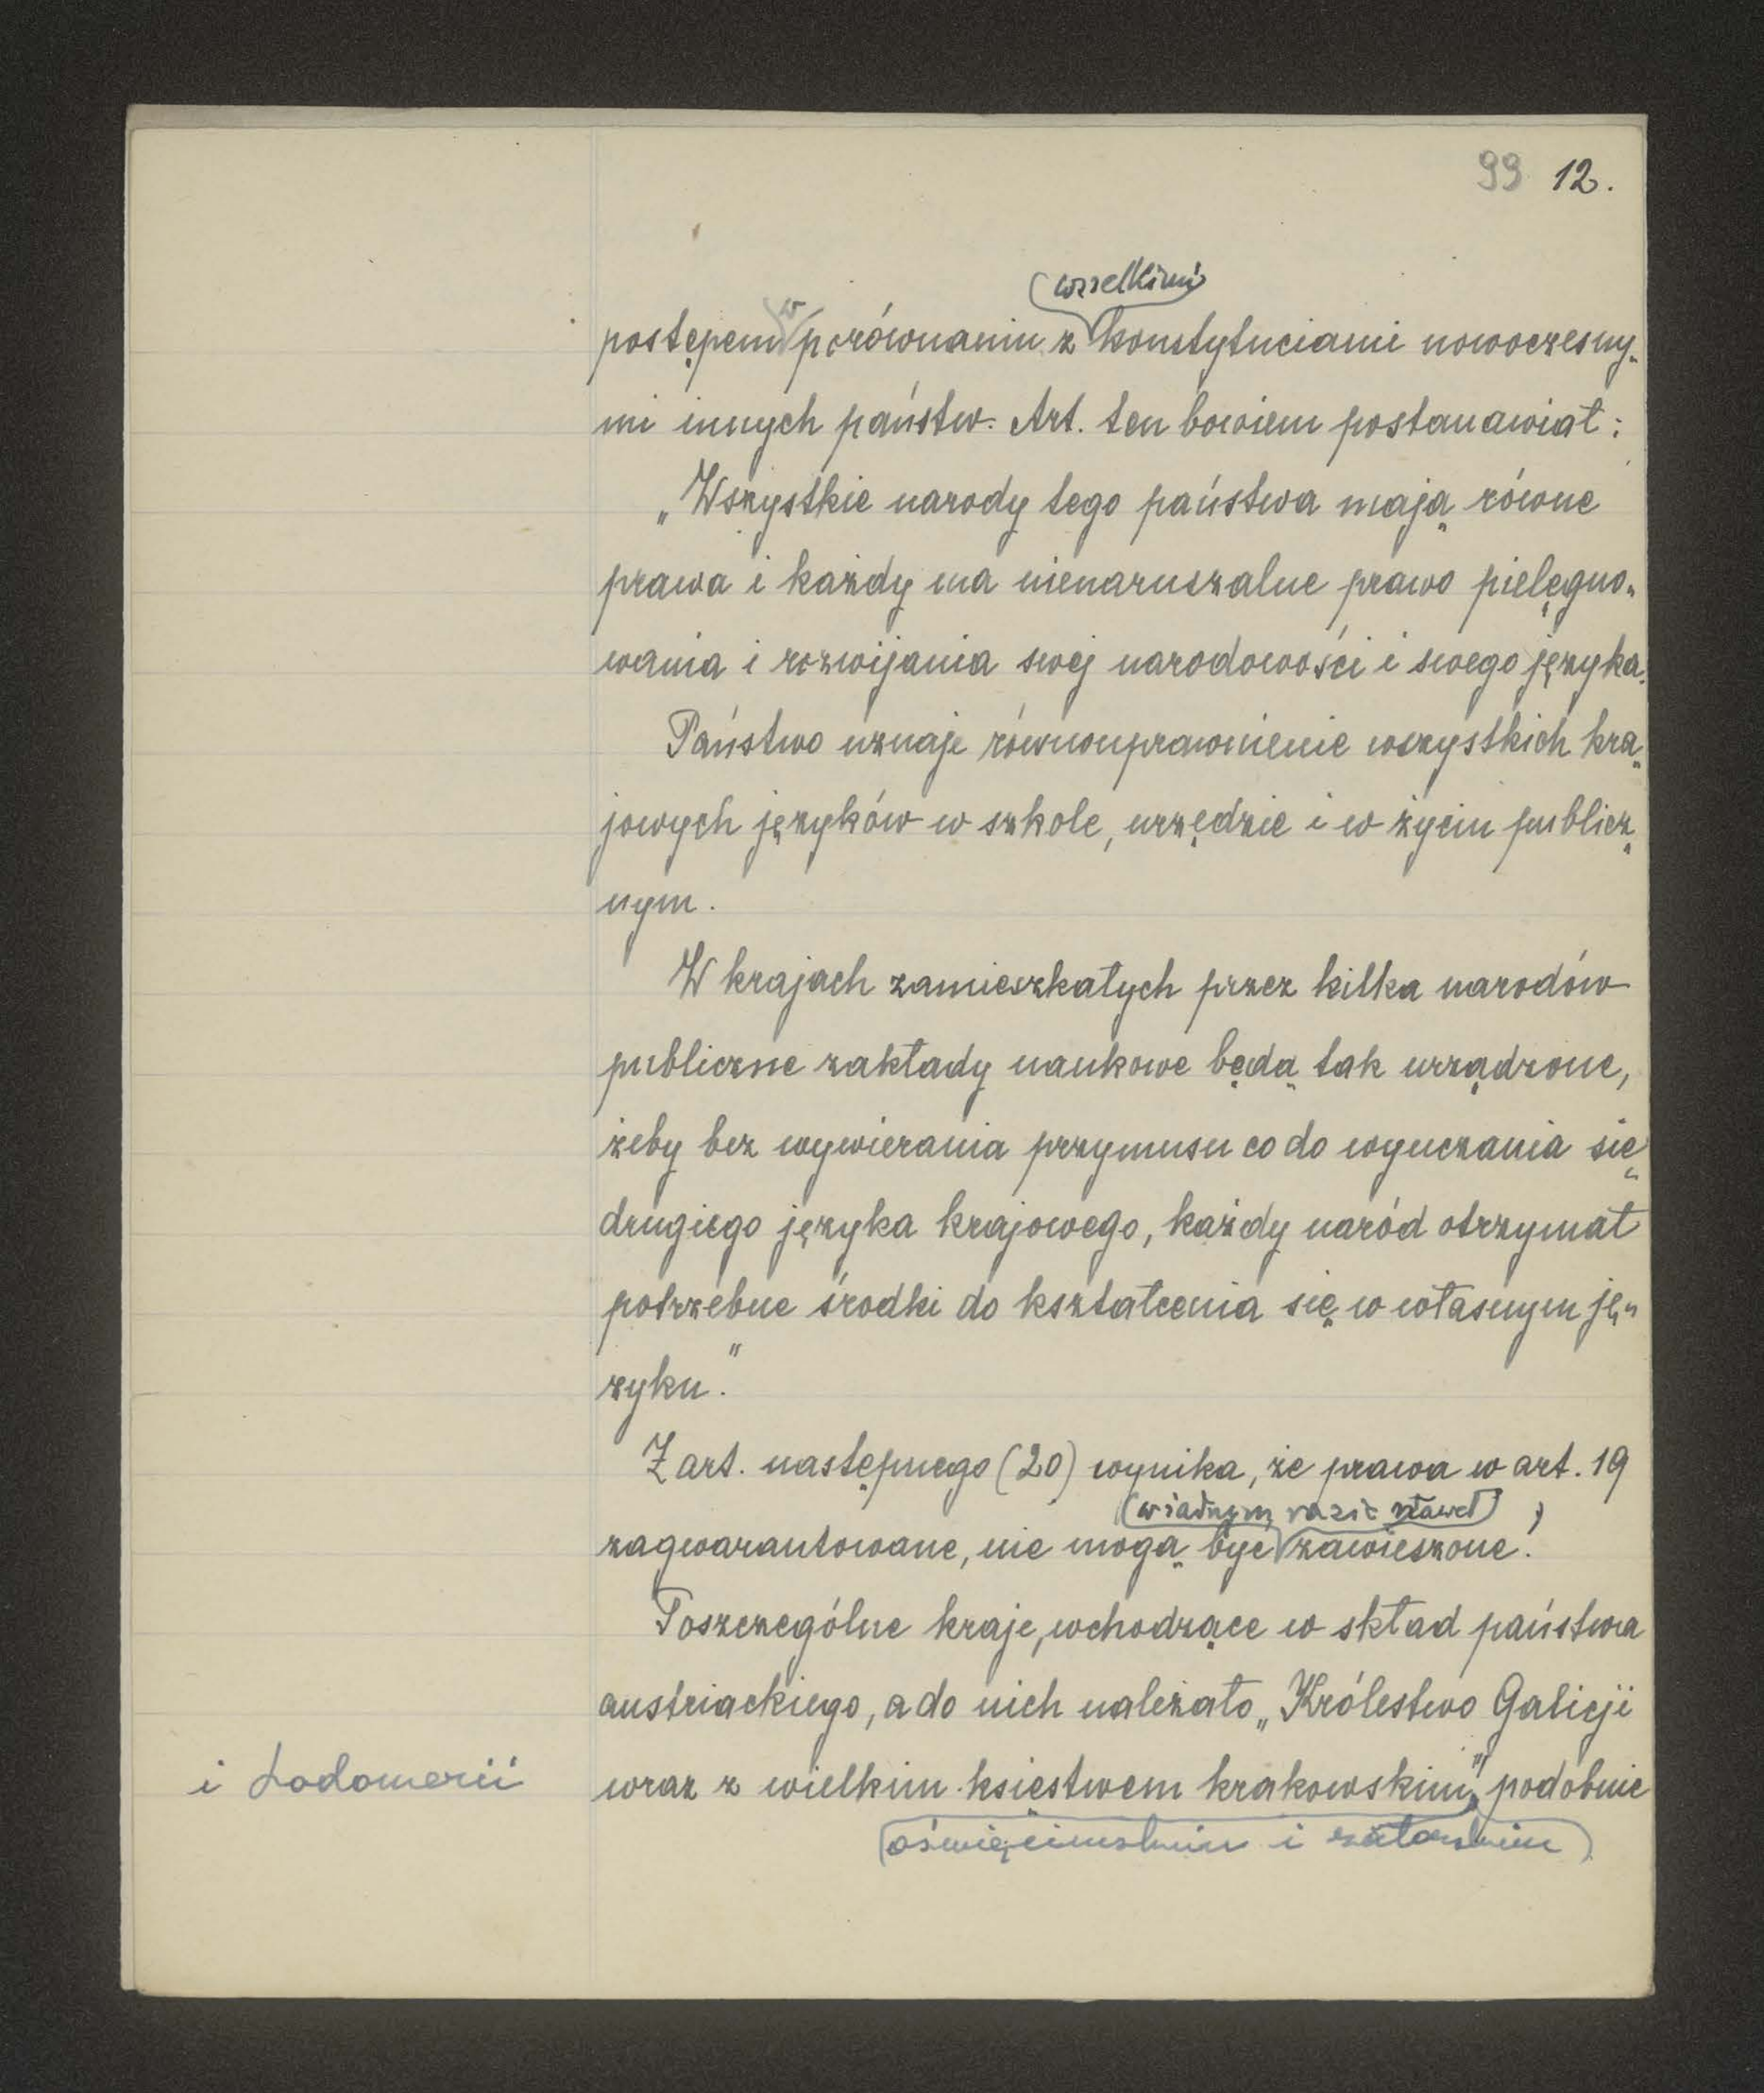 99 12.
wszelkimi
w
postępem porównaniu z konstytucjami nowoczesny-
mi innych państw. Art. ten bowiem postanawiał:
„Wszystkie narody tego państwa mają równe
prawa i każdy ma nienaruszalne prawo pielęgno-
wania i rozwijania swej narodowości i swego języka.
Państwo uznaje równouprawnienie wszystkich kra-
jowych języków w szkole, urzędzie i w życiu publicz-
nym.
W krajach zamieszkałych przez kilka narodów
publiczne zakłady naukowe będą tak urządzone,
żeby bez wywierania przymusu co do wyuczania się
drugiego języka krajowego, każdy naród otrzymał
potrzebne środki do kształcenia się w własnym ję-
zyku."
Z art. następnego (20) wynika, że prawa w art. 19
w żadnym razie nawet
zagwarantowane, nie mogą być zawieszone.
Poszczególne kraje, wchodzące w skład państwa
austriackiego, a do nich należało „Królestwo Galicji
i Lodomerii
wraz z wielkim księstwem krakowskim", podobnie
oświęcimskim i zatorskim